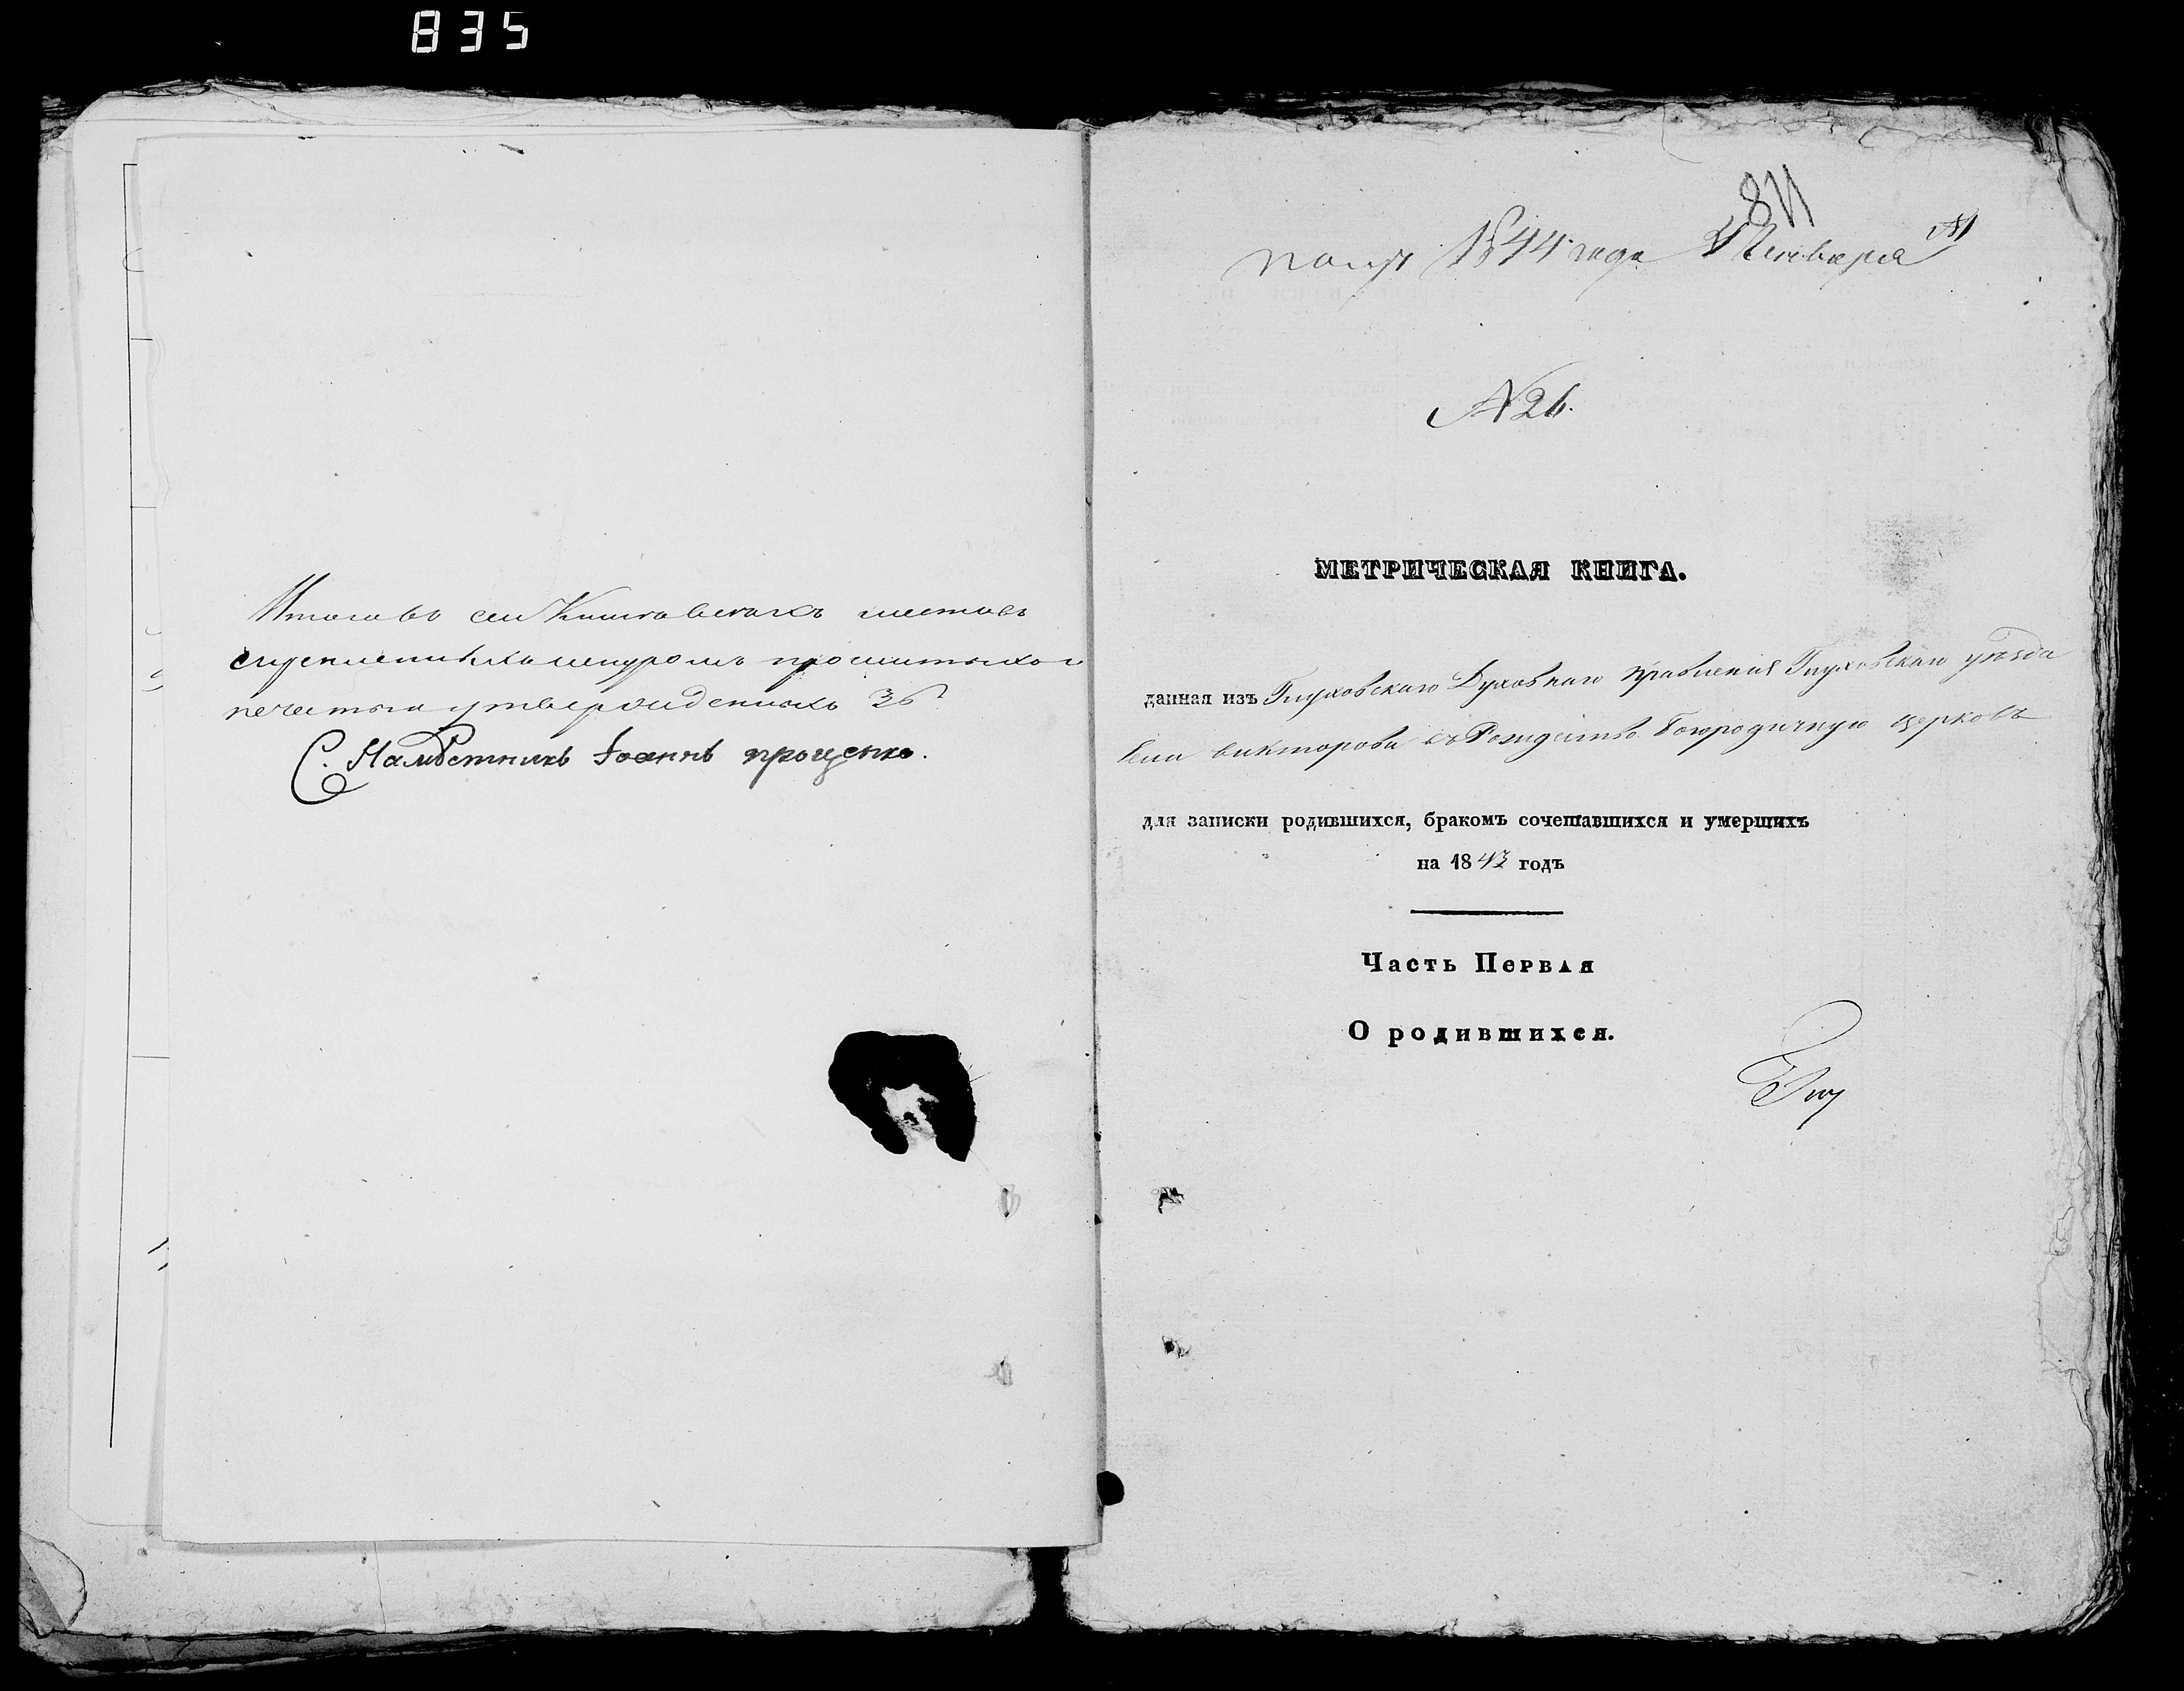 835
Итого въ сей Книги всехъ листовъ
скрепленныхъ шнуромъ прошитыхъ и
печатью утвержденныхъ 36
С. Намѣстникъ Іоаннъ Проценко.
811
Полу 1844 года Января
N 26.
МЕТРИЧЕСКАЯ КНИГА.
данная изъ Глуховскаго Духовнаго Правления Глуховскаго уѣзда
викторова въ Рождество Богородичную церковь
для записки родившихся, бракомъ сочетавшихся и умершихъ
на 1843 годъ
Часть Первая
О родившихся.